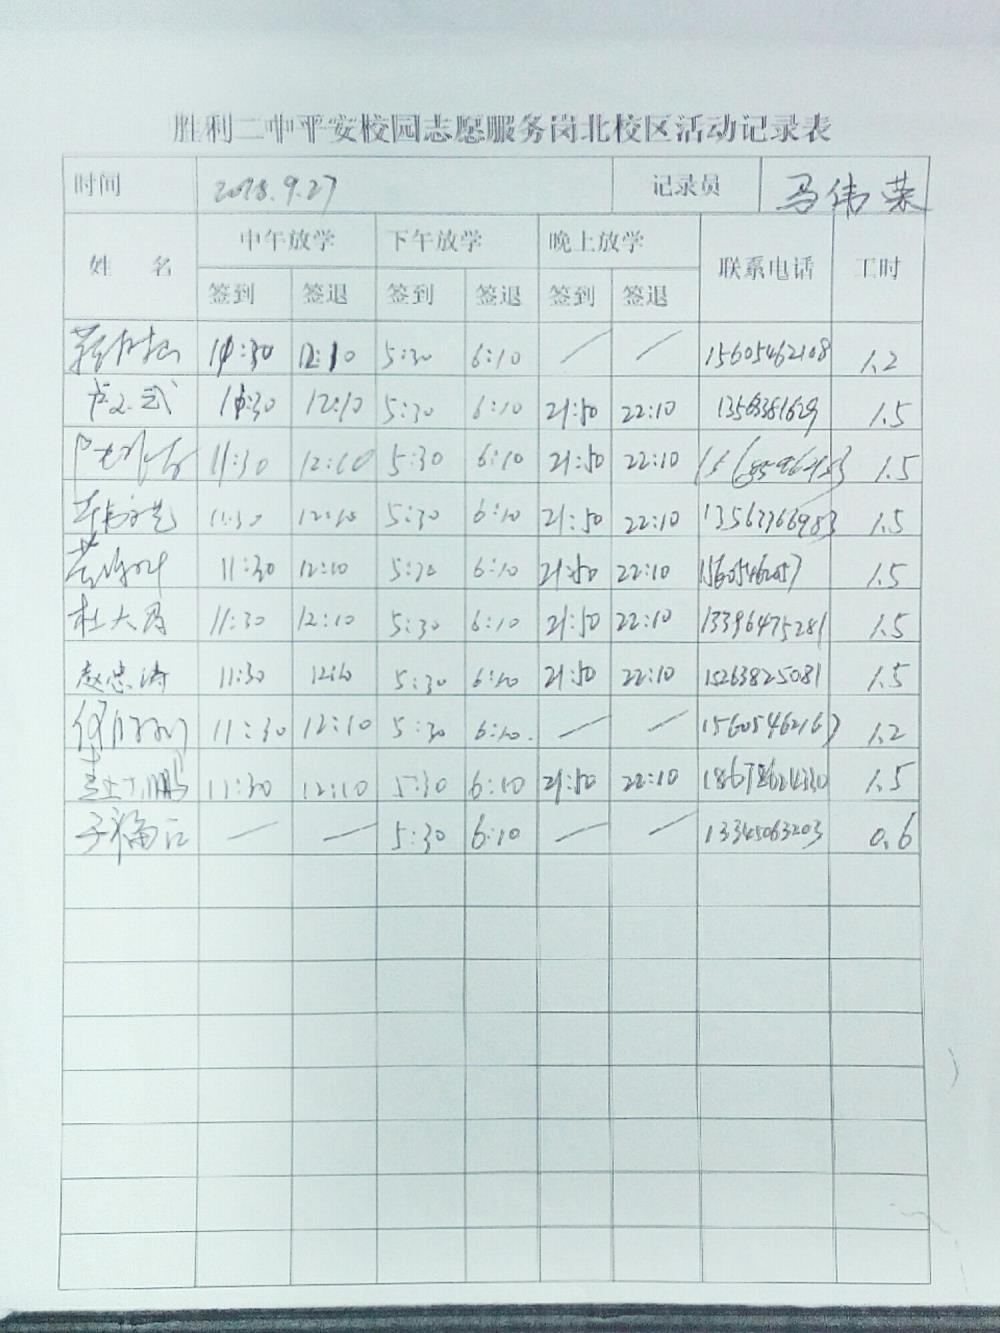 胜利二中平安校园志愿服务岗北校区活动记录表
时间 2018.9.27 记录员 马伟荣
姓名 中午放学 下午放学 晚上放学 联系电话 工时
签到 签退 签到 签退 签到 签退
11:30 12:10 5:30 6:10 / / 15605462108 1.2
11:30 12:10 5:30 6:10 21:50 22:10 1.5
11:30 12:10 5:30 6:10 21:50 22:10 1.5
11:30 12:10 5:30 6:10 21:50 22:10 13563366983 1.5
11:30 12:10 5:30 6:10 21:50 22:10 1.5
杜大为 11:30 12:10 5:30 6:10 21:50 22:10 13396475281 1.5
赵忠涛 11:30 12:10 5:30 6:10 21:50 22:10 15263825081 1.5
11:30 12:10 5:30 6:10 / / 15605462167 1.2
11:30 12:10 5:30 6:10 21:50 22:10 18678624330 1.5
/ / 5:30 6:10 / / 13345063203 0.6